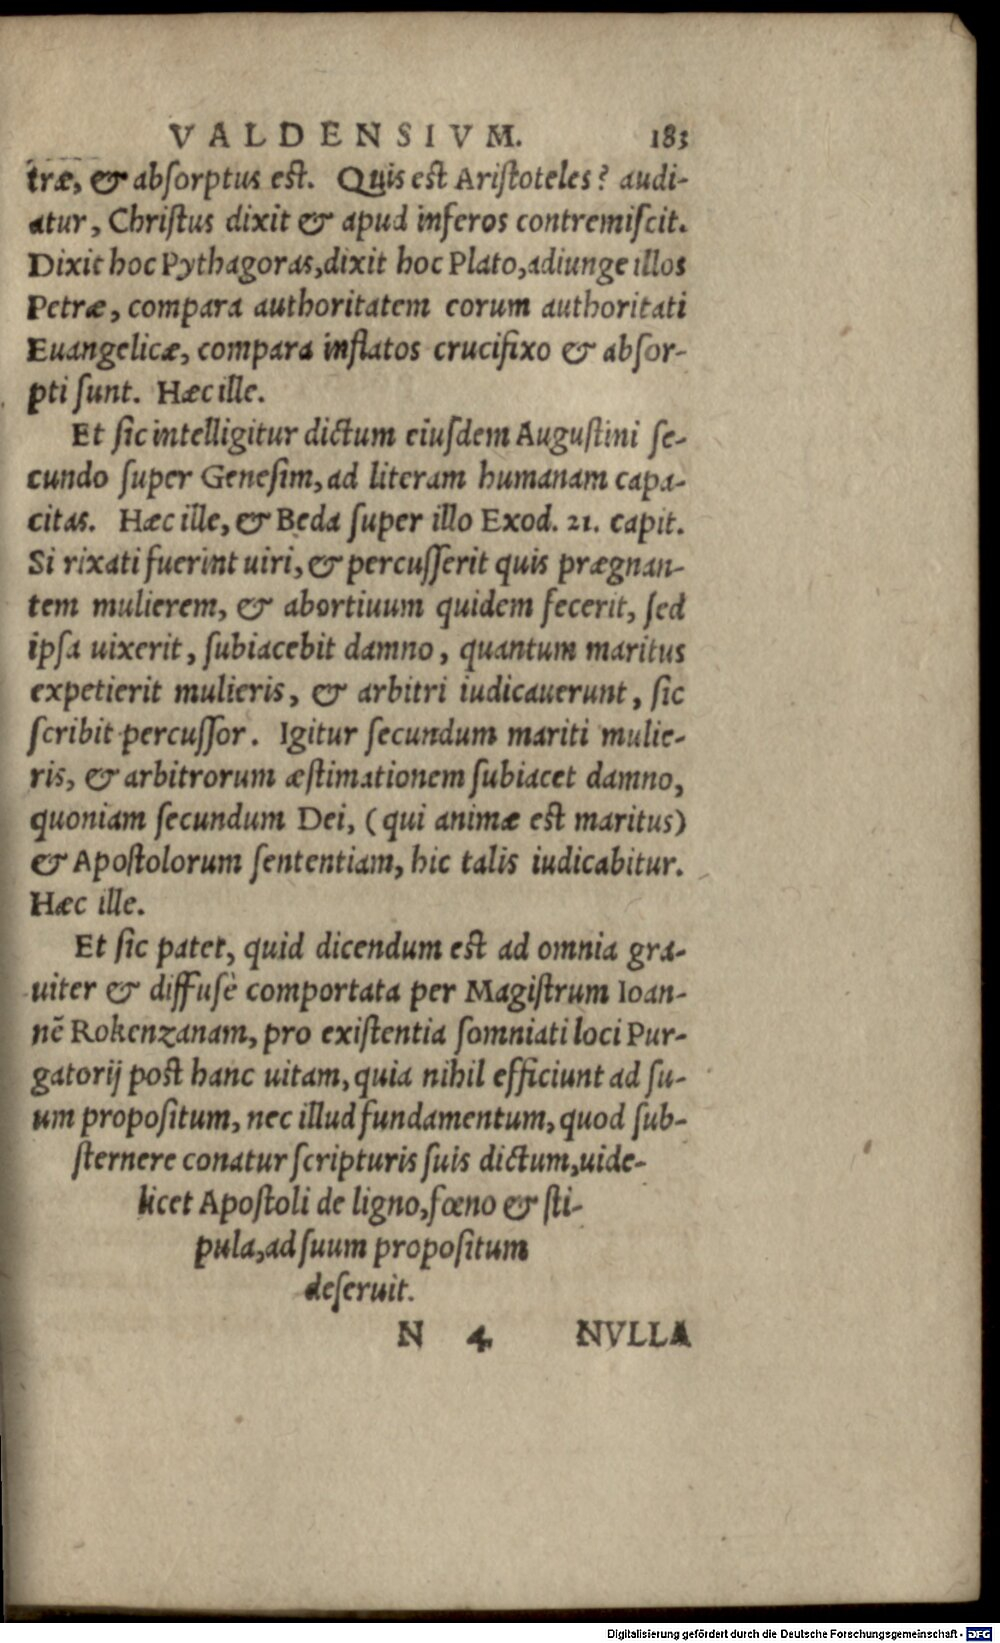 VALDENSIVM. 183
træ, & absorptus est. Quis est Aristoteles? audi-
atur, Christus dixit & apud inferos contremiscit.
Dixit hoc Pythagoras, dixit hoc Plato, adiunge illos
Petræ, compara authoritatem eorum authoritati
Euangelicæ, compara inflatos crucifixo & absor-
pti sunt. Hæc ille.
Et sic intelligitur dictum eiusdem Augustini se-
cundo super Genesim, ad literam humanam capa-
citas. Hæc ille, & Beda super illo Exod. 21. capit.
Si rixati fuerint uiri, & percusserit quis prægnan-
tem mulierem, & abortiuum quidem fecerit, sed
ipsa uixerit, subiacebit damno, quantum maritus
expetierit mulieris, & arbitri iudicauerunt, sic
scribit percussor. Igitur secundum mariti mulie-
ris, & arbitrorum æstimationem subiacet damno,
quoniam secundum Dei, (qui animæ est maritus)
& Apostolorum sententiam, hic talis iudicabitur.
Hæc ille.
Et sic patet, quid dicendum est ad omnia gra-
uiter & diffusè comportata per Magistrum Ioan-
nẽ Rokenzanam, pro existentia somniati loci Pur-
gatorij post hanc uitam, quia nihil efficiunt ad su-
um propositum, nec illud fundamentum, quod sub-
sternere conatur scripturis suis dictum, uide-
licet Apostoli de ligno, fœno & sti-
pula, ad suum propositum
deseruit.
N 4 NVLLA
Digitalisierung gefördert durch die Deutsche Forschungsgemeinschaft - DFG